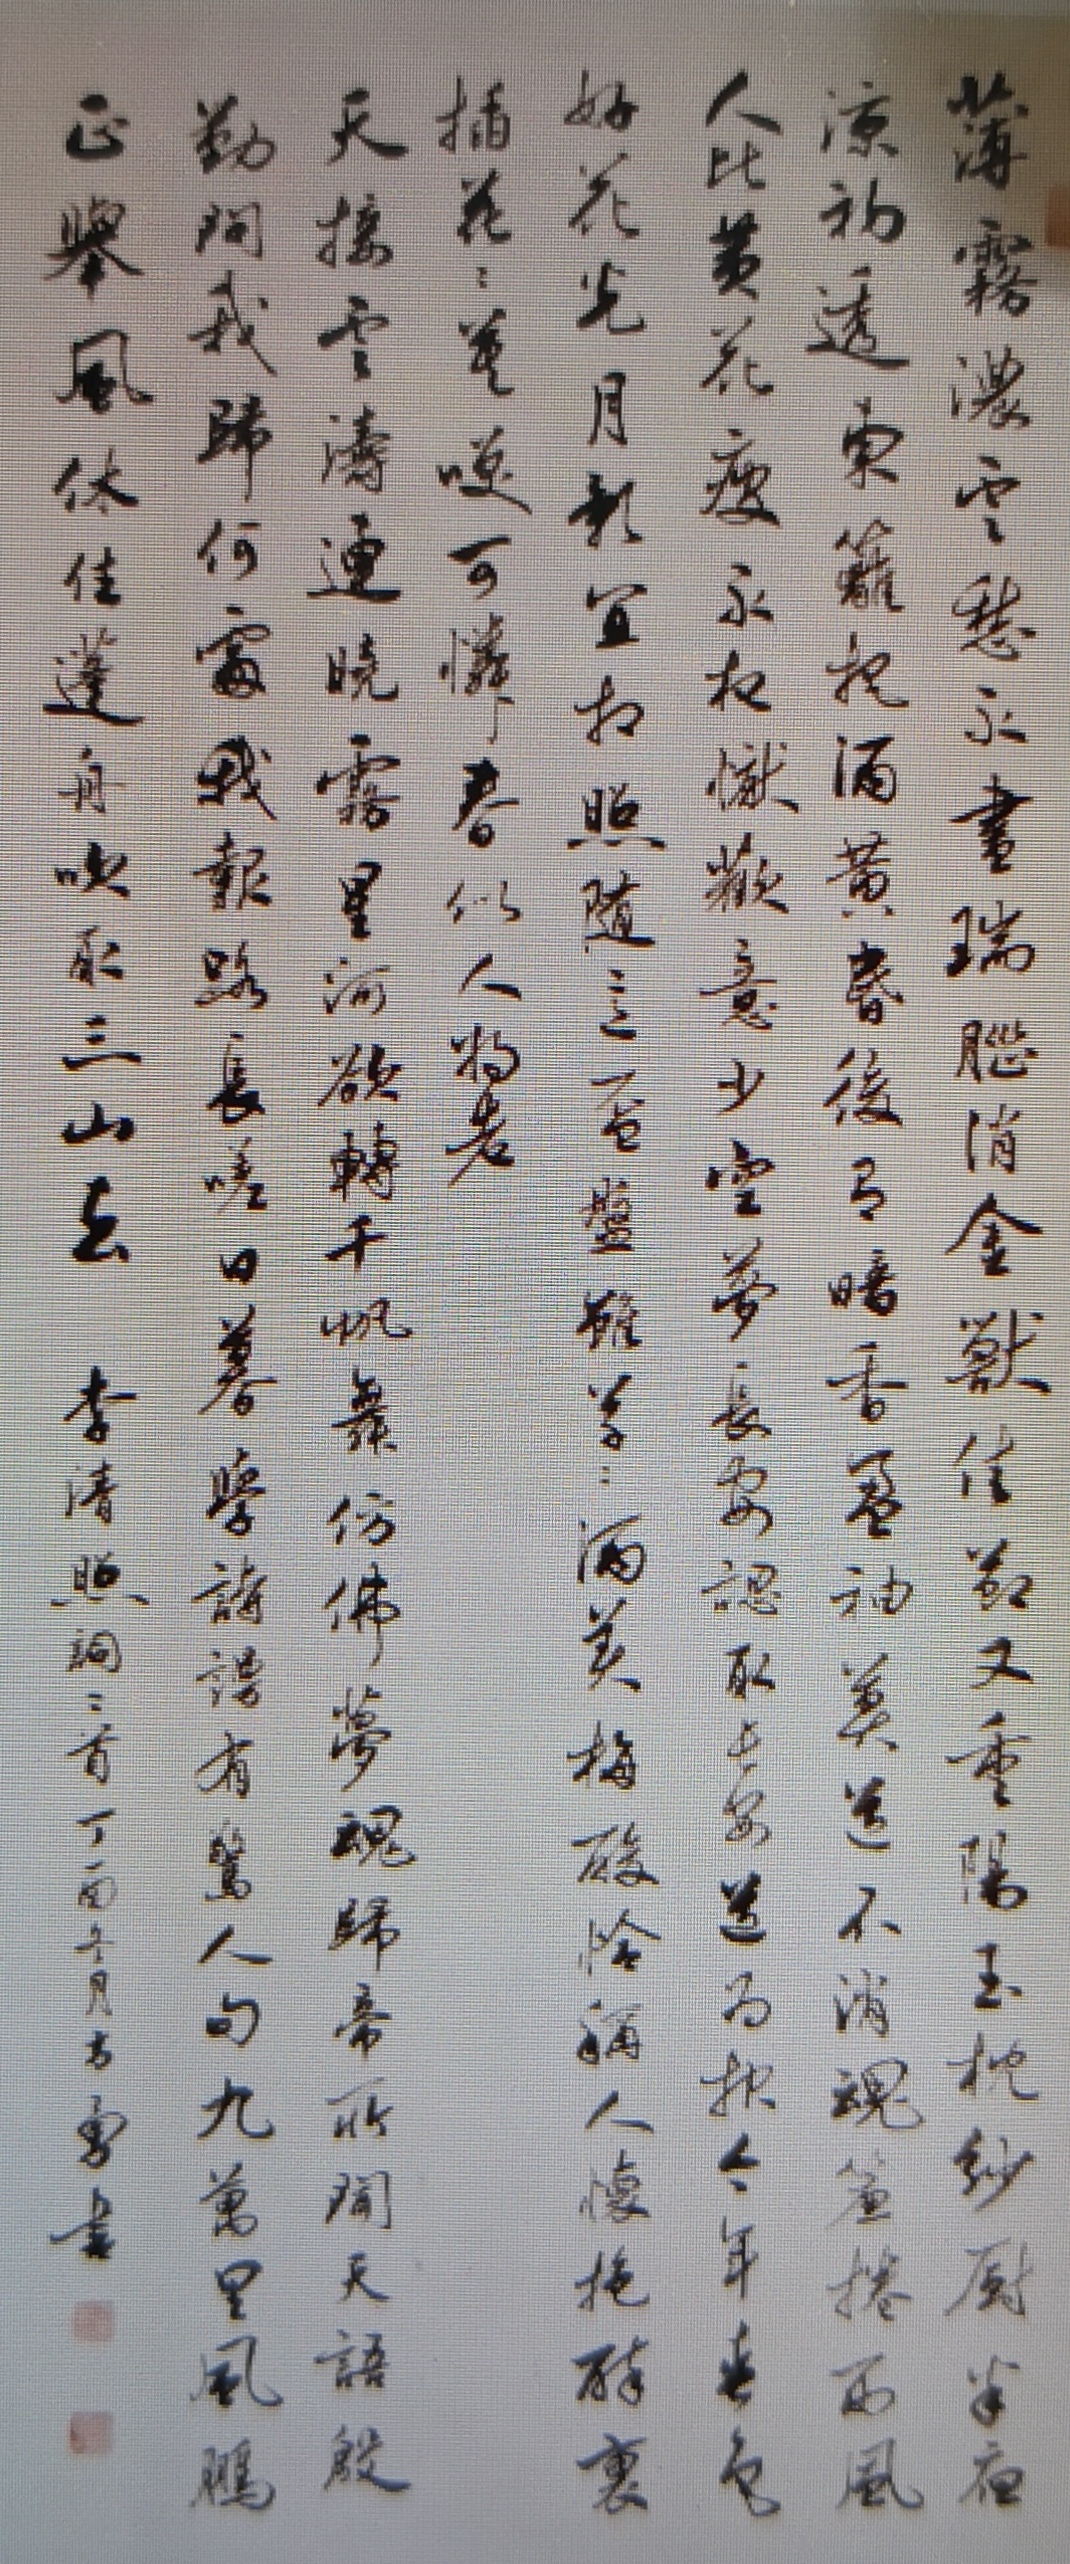 薄霧濃雲愁永晝瑞腦消金獸佳節又重陽玉枕紗厨半夜
涼初透東籬把酒黄昏後有暗香盈袖莫道不消魂簾捲西風
人比黄花瘦永夜懨懨歡意少空夢長安認取長安道為報今年春色
好花光月影宜相照隨意杯盤雖草〻酒美梅酸恰稱人懷抱醉裏
插花〻莫咲可憐春似人將老
天接雲濤連曉霧星河欲轉千帆舞仿佛夢魂歸帝所聞天語殷
勤問我歸何處我報路長嗟日暮學詩謾有驚人句九萬里風鵬
正舉風休住蓬舟吹取三山去 李清照詞三首丁酉冬月書